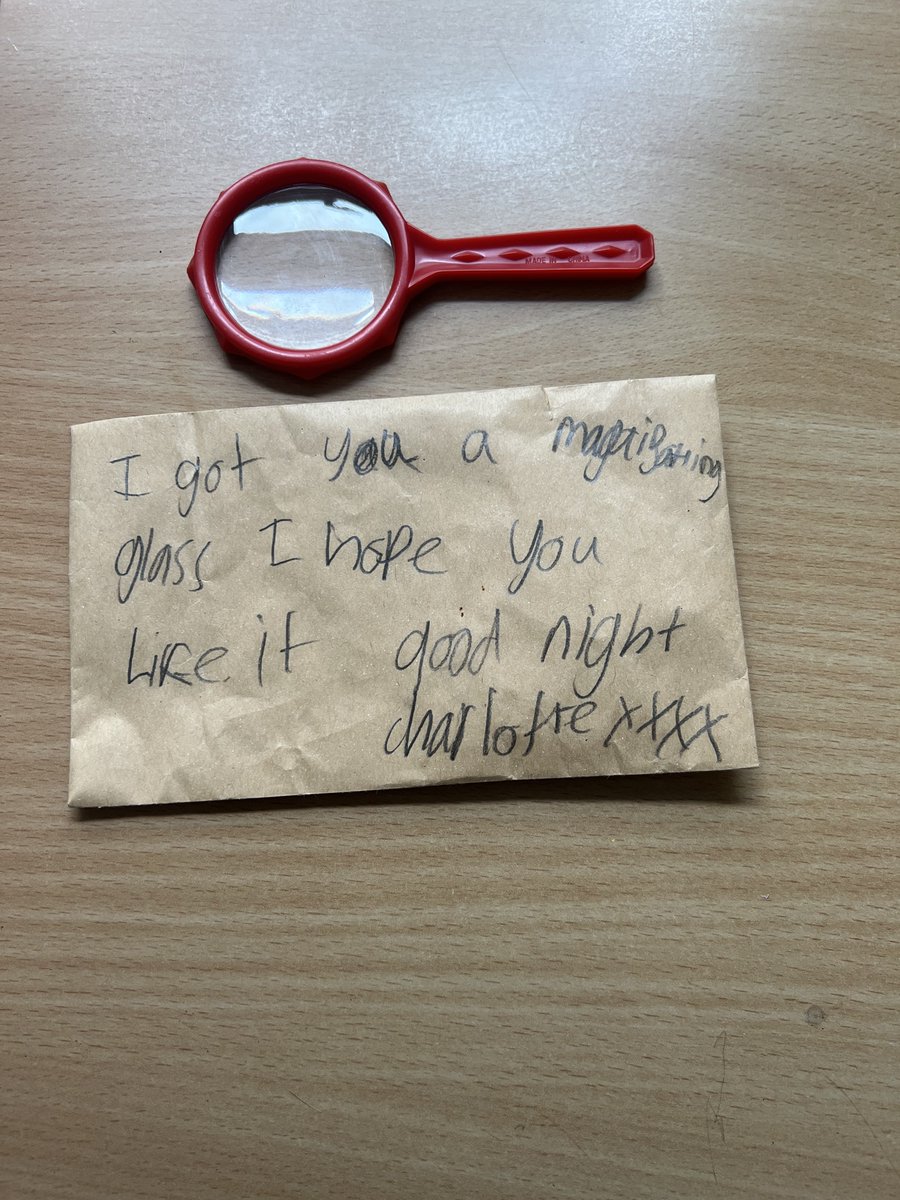 MADE IN CHINA
I got you a
glass I hope you
Like it good night
charlotte xxxx